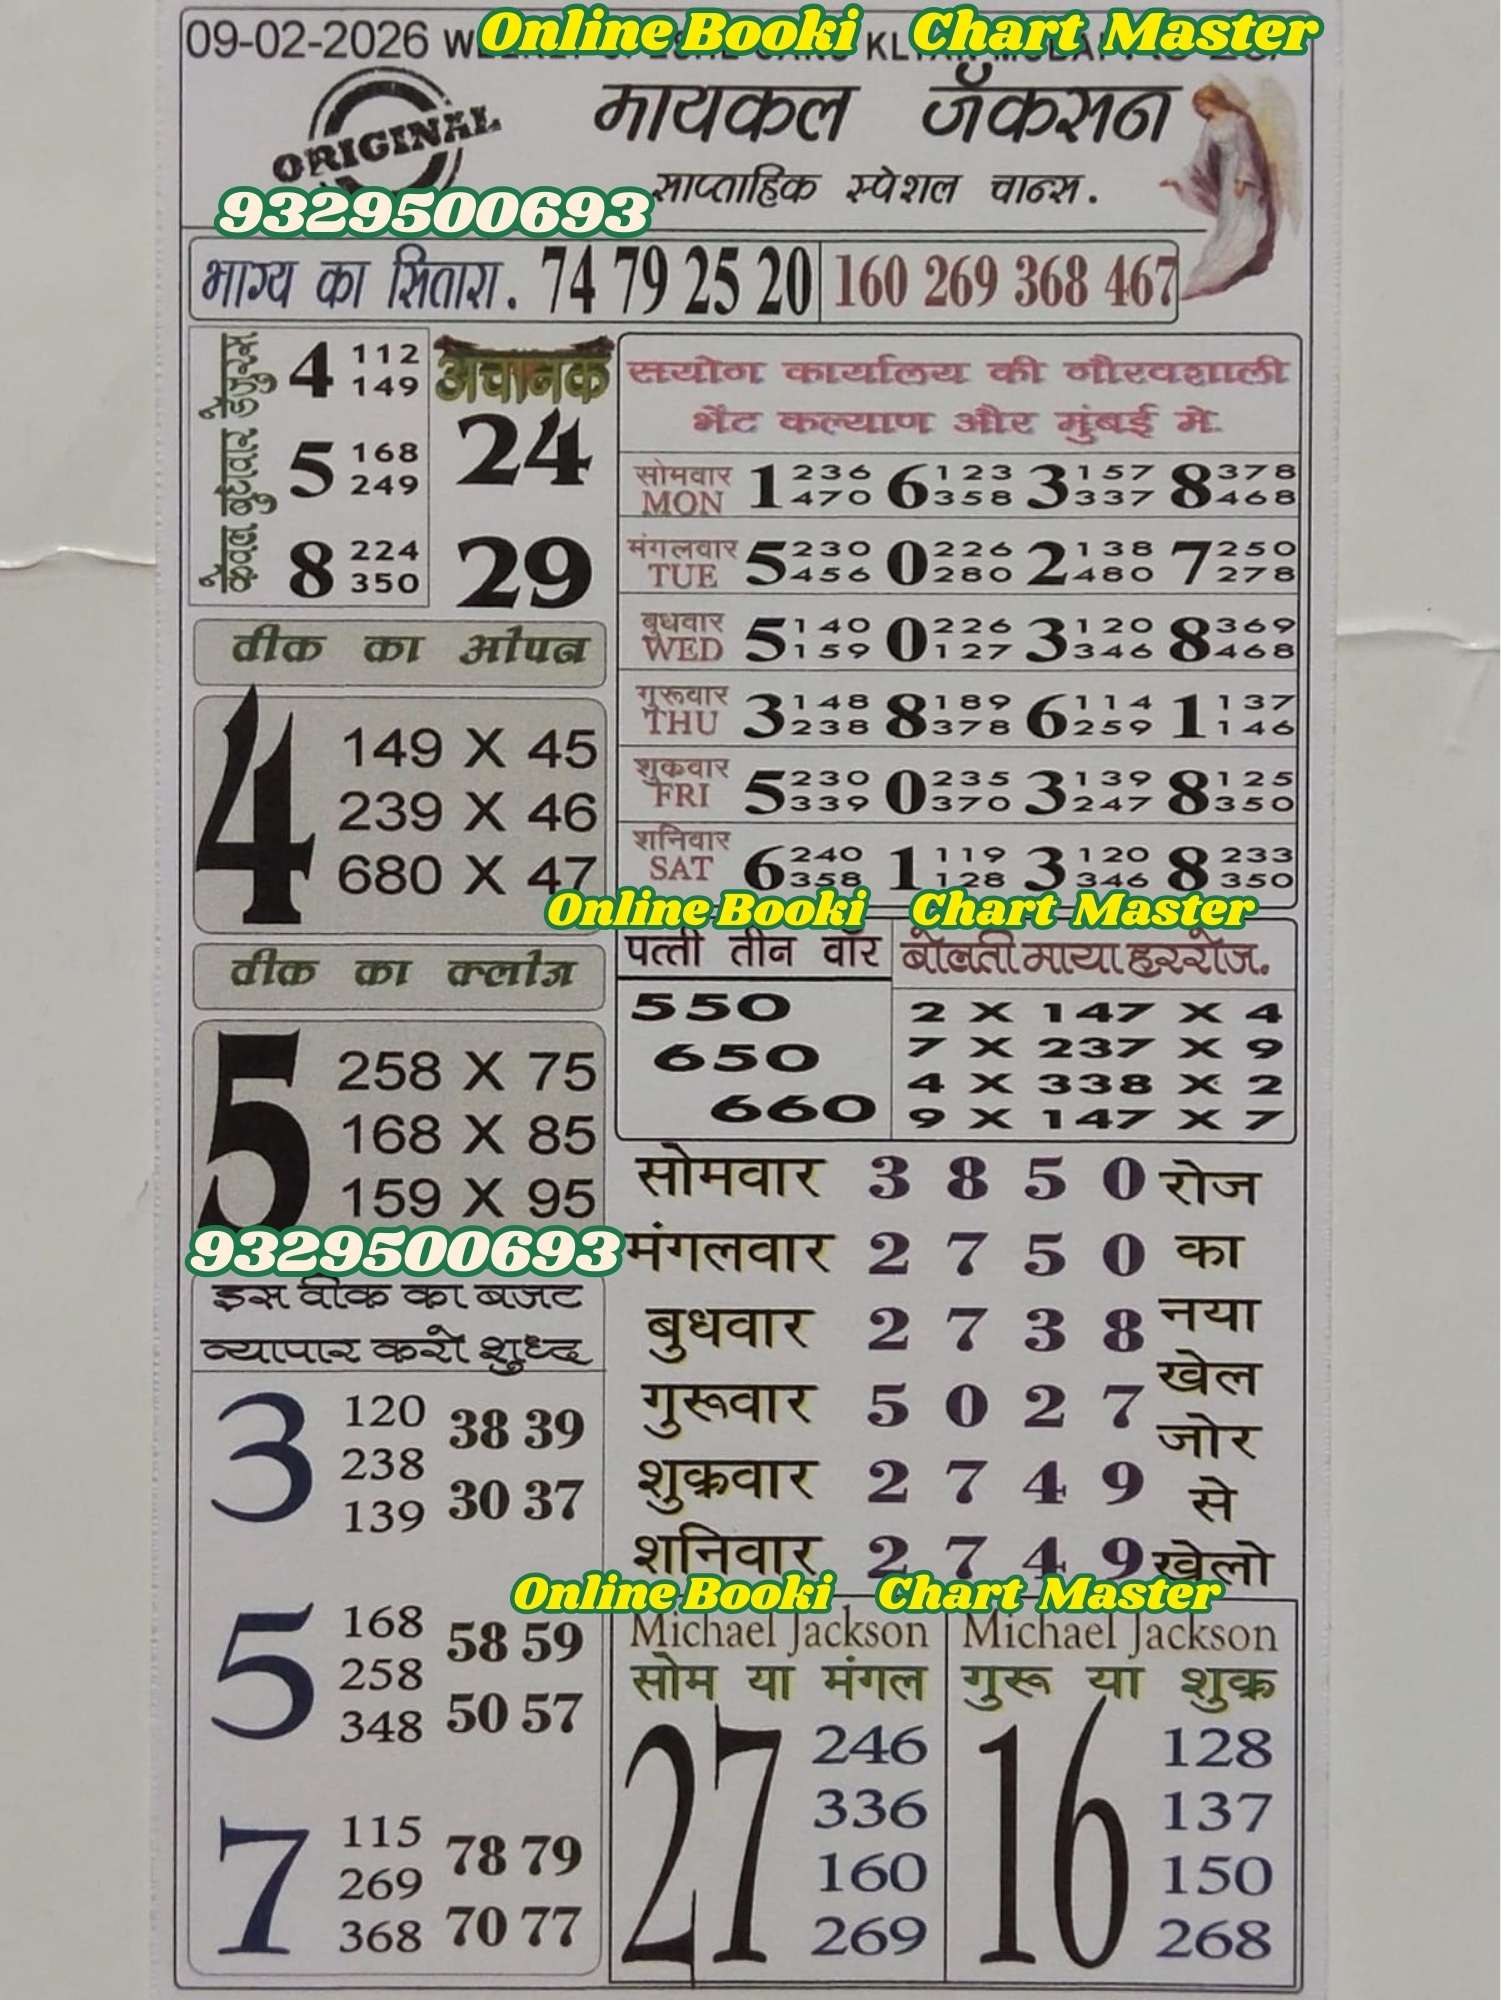 Online Booki Chart Master
09-02-2026
मायकल जॅकसन
ORIGINAL
साप्ताहिक स्पेशल चान्स.
9329500693
भाग्य का सितारा. 74 79 25 20 160 269 368 467
केवल बुधवार
4 112 149
5 168 249
8 224 350
अचानक
24
29
सयोग कार्यालय की गौरवशाली
भेंट कल्याण और मुंबई मे.
सोमवार MON 1 236 470 6 123 358 3 157 337 8 378 468
मंगलवार TUE 5 230 456 0 226 280 2 138 480 7 250 278
बुधवार WED 5 140 159 0 226 127 3 120 346 8 369 468
गुरूवार THU 3 148 238 8 189 378 6 114 259 1 137 146
शुकवार FRI 5 230 339 0 235 370 3 139 247 8 125 350
शनिवार SAT 6 240 358 1 119 128 3 120 346 8 233 350
वीक का ओपन
4
149 X 45
239 X 46
680 X 47
Online Booki Chart Master
वीक का क्लोज
5
258 X 75
168 X 85
159 X 95
9329500693
पत्ती तीन वॉर
550
650
660
बोलती माया हररोज.
2 X 147 X 4
7 X 237 X 9
4 X 338 X 2
9 X 147 X 7
सोमवार 3 8 5 0
मंगलवार 2 7 5 0
बुधवार 2 7 3 8
गुरूवार 5 0 2 7
शुक्रवार 2 7 4 9
शनिवार 2 7 4 9
रोज
का
नया
खेल
जोर
से
खेलो
इस वीक का बजट
व्यापार करो शुध्द
3
120 38 39
238
139 30 37
5
168 58 59
258
348 50 57
7
115 78 79
269
368 70 77
Online Booki Chart Master
Michael Jackson
सोम या मंगल
27
246
336
160
269
Michael Jackson
गुरू या शुक्र
16
128
137
150
268